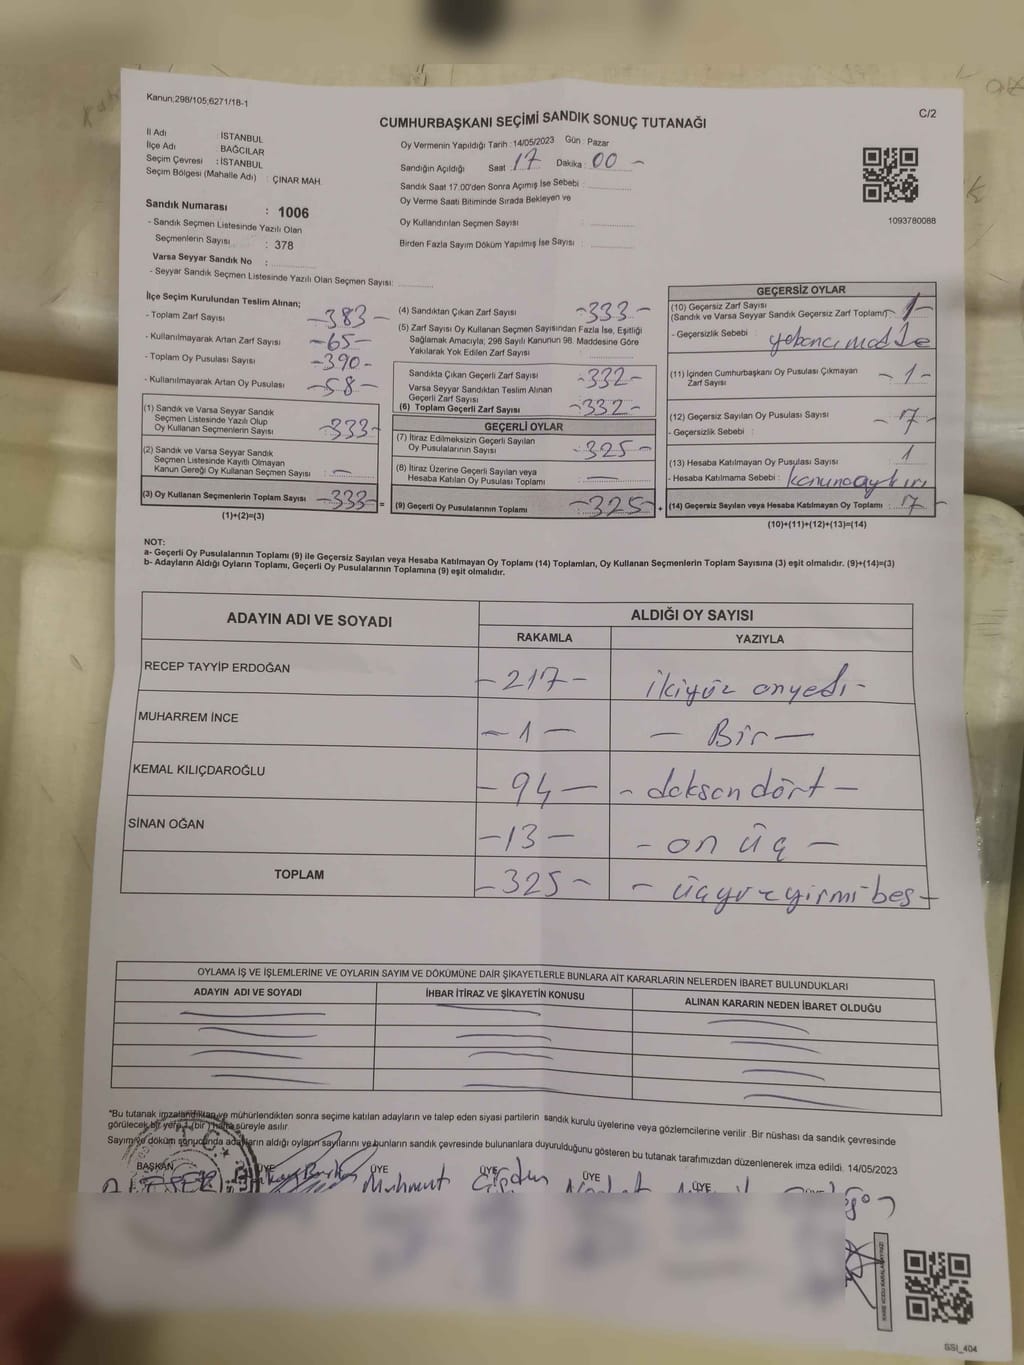 Kanun;298/105,6271/18-1
C/2
CUMHURBAŞKANI SEÇİMİ SANDIK SONUÇ TUTANAĞI
İl Adı : İSTANBUL
İlçe Adı : BAĞCILAR
Seçim Çevresi : İSTANBUL
Seçim Bölgesi (Mahalle Adı) : ÇINAR MAH.
Sandık Numarası : 1006
- Sandık Seçmen Listesinde Yazılı Olan
Seçmenlerin Sayısı : 378
Varsa Seyyar Sandık No :
- Seyyar Sandık Seçmen Listesinde Yazılı Olan Seçmen Sayısı:
Oy Vermenin Yapıldığı Tarih : 14/05/2023 Gün : Pazar
Sandığın Açıldığı Saat : 17 Dakika : 00 -
Sandık Saat 17.00'den Sonra Açımış İse Sebebi :
Oy Verme Saati Bitiminde Sırada Bekleyen ve
Oy Kullandırılan Seçmen Sayısı :
Birden Fazla Sayım Döküm Yapılmış İse Sayısı :
1093780088
İlçe Seçim Kurulundan Teslim Alınan;
- Toplam Zarf Sayısı : -383-
- Kullanılmayarak Artan Zarf Sayısı : -65-
- Toplam Oy Pusulası Sayısı : -390-
- Kullanılmayarak Artan Oy Pusulası : -58-
(1) Sandık ve Varsa Seyyar Sandık
Seçmen Listesinde Yazılı Olup
Oy Kullanan Seçmenlerin Sayısı : -333-
(2) Sandık ve Varsa Seyyar Sandık
Seçmen Listesinde Kayıtlı Olmayan
Kanun Gereği Oy Kullanan Seçmen Sayısı : —
(3) Oy Kullanan Seçmenlerin Toplam Sayısı : -333- =
(1)+(2)=(3)
(4) Sandıktan Çıkan Zarf Sayısı : -333-
(5) Zarf Sayısı Oy Kullanan Seçmen Sayısından Fazla İse, Eşitliği
Sağlamak Amacıyla; 298 Sayılı Kanunun 98. Maddesine Göre
Yakılarak Yok Edilen Zarf Sayısı :
Sandıkta Çıkan Geçerli Zarf Sayısı : -332-
Varsa Seyyar Sandıktan Teslim Alınan
Geçerli Zarf Sayısı :
(6) Toplam Geçerli Zarf Sayısı : -332-
GEÇERLİ OYLAR
(7) İtiraz Edilmeksizin Geçerli Sayılan
Oy Pusulalarının Sayısı : -325-
(8) İtiraz Üzerine Geçerli Sayılan veya
Hesaba Katılan Oy Pusulası Toplamı : —
(9) Geçerli Oy Pusulalarının Toplamı : -325- +
GEÇERSİZ OYLAR
(10) Geçersiz Zarf Sayısı
(Sandık ve Varsa Seyyar Sandık Geçersiz Zarf Toplamı) : 1-
- Geçersizlik Sebebi : yabancı madde
(11) İçinden Cumhurbaşkanı Oy Pusulası Çıkmayan
Zarf Sayısı : -1-
(12) Geçersiz Sayılan Oy Pusulası Sayısı : -7-
- Geçersizlik Sebebi :
(13) Hesaba Katılmayan Oy Pusulası Sayısı : 1
- Hesaba Katılmama Sebebi : kanuna aykırı
(14) Geçersiz Sayılan veya Hesaba Katılmayan Oy Toplamı :
(10)+(11)+(12)+(13)=(14)
NOT:
a- Geçerli Oy Pusulalarının Toplamı (9) ile Geçersiz Sayılan veya Hesaba Katılmayan Oy Toplamı (14) Toplamları, Oy Kullanan Seçmenlerin Toplam Sayısına (3) eşit olmalıdır. (9)+(14)=(3)
b- Adayların Aldığı Oyların Toplamı, Geçerli Oy Pusulalarının Toplamına (9) eşit olmalıdır.
ADAYIN ADI VE SOYADI ALDIĞI OY SAYISI
RAKAMLA YAZIYLA
RECEP TAYYİP ERDOĞAN -217- ikiyüz onyedi-
MUHARREM İNCE -1- - Bir -
KEMAL KILIÇDAROĞLU -94- - doksan dört -
SİNAN OĞAN -13- - on üç -
TOPLAM -325- - üçyüz yirmi beş -
OYLAMA İŞ VE İŞLEMLERİNE VE OYLARIN SAYIM VE DÖKÜMÜNE DAİR ŞİKAYETLERLE BUNLARA AİT KARARLARIN NELERDEN İBARET BULUNDUKLARI
ADAYIN ADI VE SOYADI İHBAR İTİRAZ VE ŞİKAYETİN KONUSU ALINAN KARARIN NEDEN İBARET OLDUĞU
*Bu tutanak imzalandıktan ve mühürlendikten sonra seçime katılan adayların ve talep eden siyasi partilerin sandık kurulu üyelerine veya gözlemcilerine verilir .Bir nüshası da sandık çevresinde
görülecek bir yere 1 (bir ) hafta süreyle asılır.
Sayım ve döküm sonucunda adayların aldığı oyların sayılarını ve bunların sandık çevresinde bulunanlara duyurulduğunu gösteren bu tutanak tarafımızdan düzenlenerek imza edildi. 14/05/2023
BAŞKAN ÜYE ÜYE ÜYE ÜYE ÜYE
Mahmut
T.C.
SSI_404